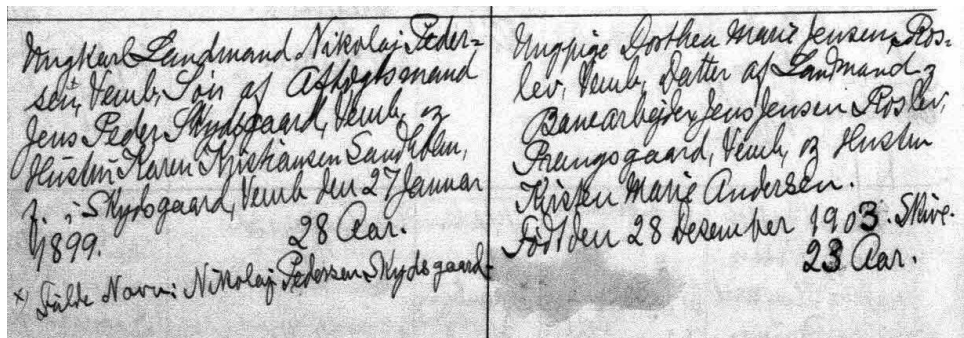 Ungkarl Landmand Nikolaj Peder=
sen, Vemb, Søn af Aftægtsmand
Jens Peder Skydsgaard, Vemb og
Hustru Karen Kristiansen Sandholm,
f. i Skydsgaard, Vemb den 27 Januar
1899. 28 Aar.
x) Fulde Navn: Nikolaj Pedersen Skydsgaard
Ungpige Dorthea Marie Jensen Ros=
lev, Vemb, Datter af Landmand og
Banearbejder Jens Jensen Roslev,
Prangsgaard, Vemb, og Hustru
Kirsten Marie Andersen.
Født den 28 Desember 1903. Skive.
23 Aar.